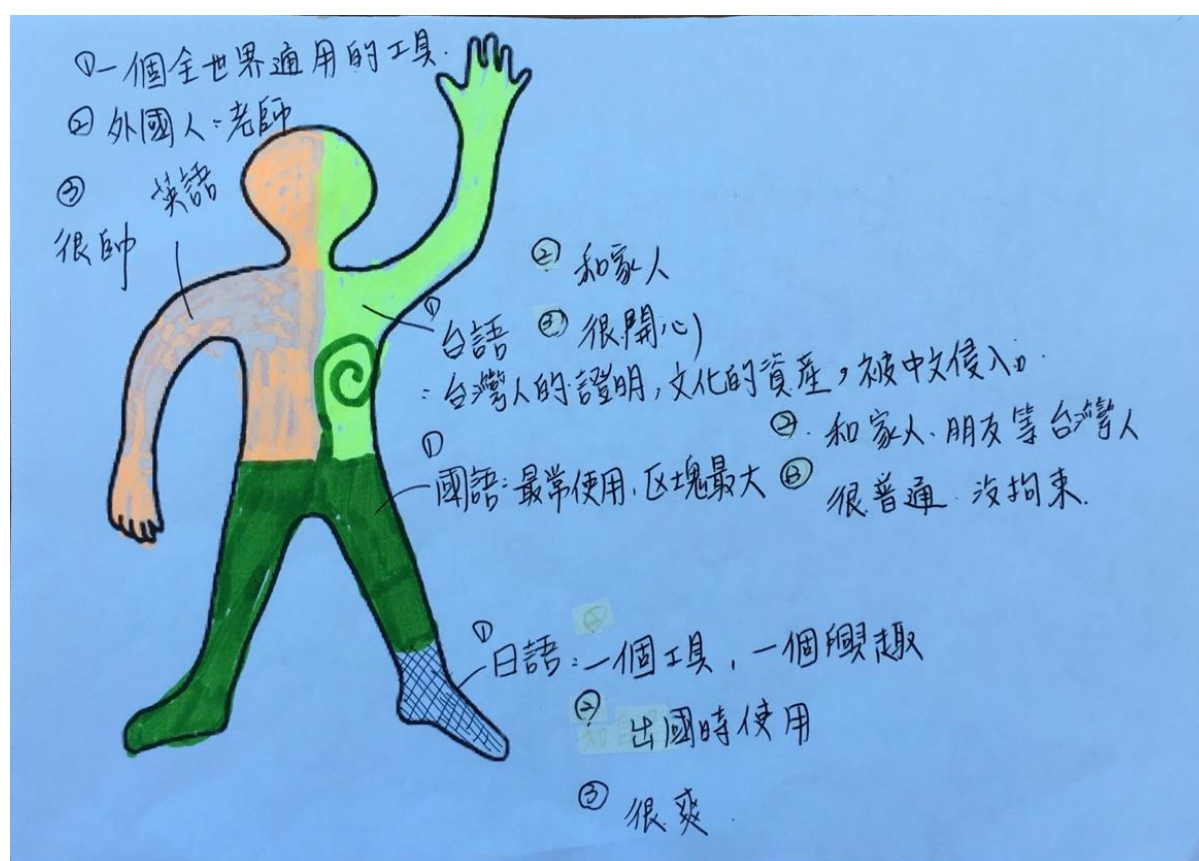 ①一個全世界通用的工具.
② 外國人:老師
③ 英語
很帥
② 和家人
① 台語 ③ 很開心
:台灣人的證明,文化的資產,被中文侵入。
② 和家人、朋友等台灣人
① 國語:最常使用,区塊最大 ③ 很普通 沒拘束.
① 日語:一個工具,一個興趣
② 出國時使用
③ 很爽.